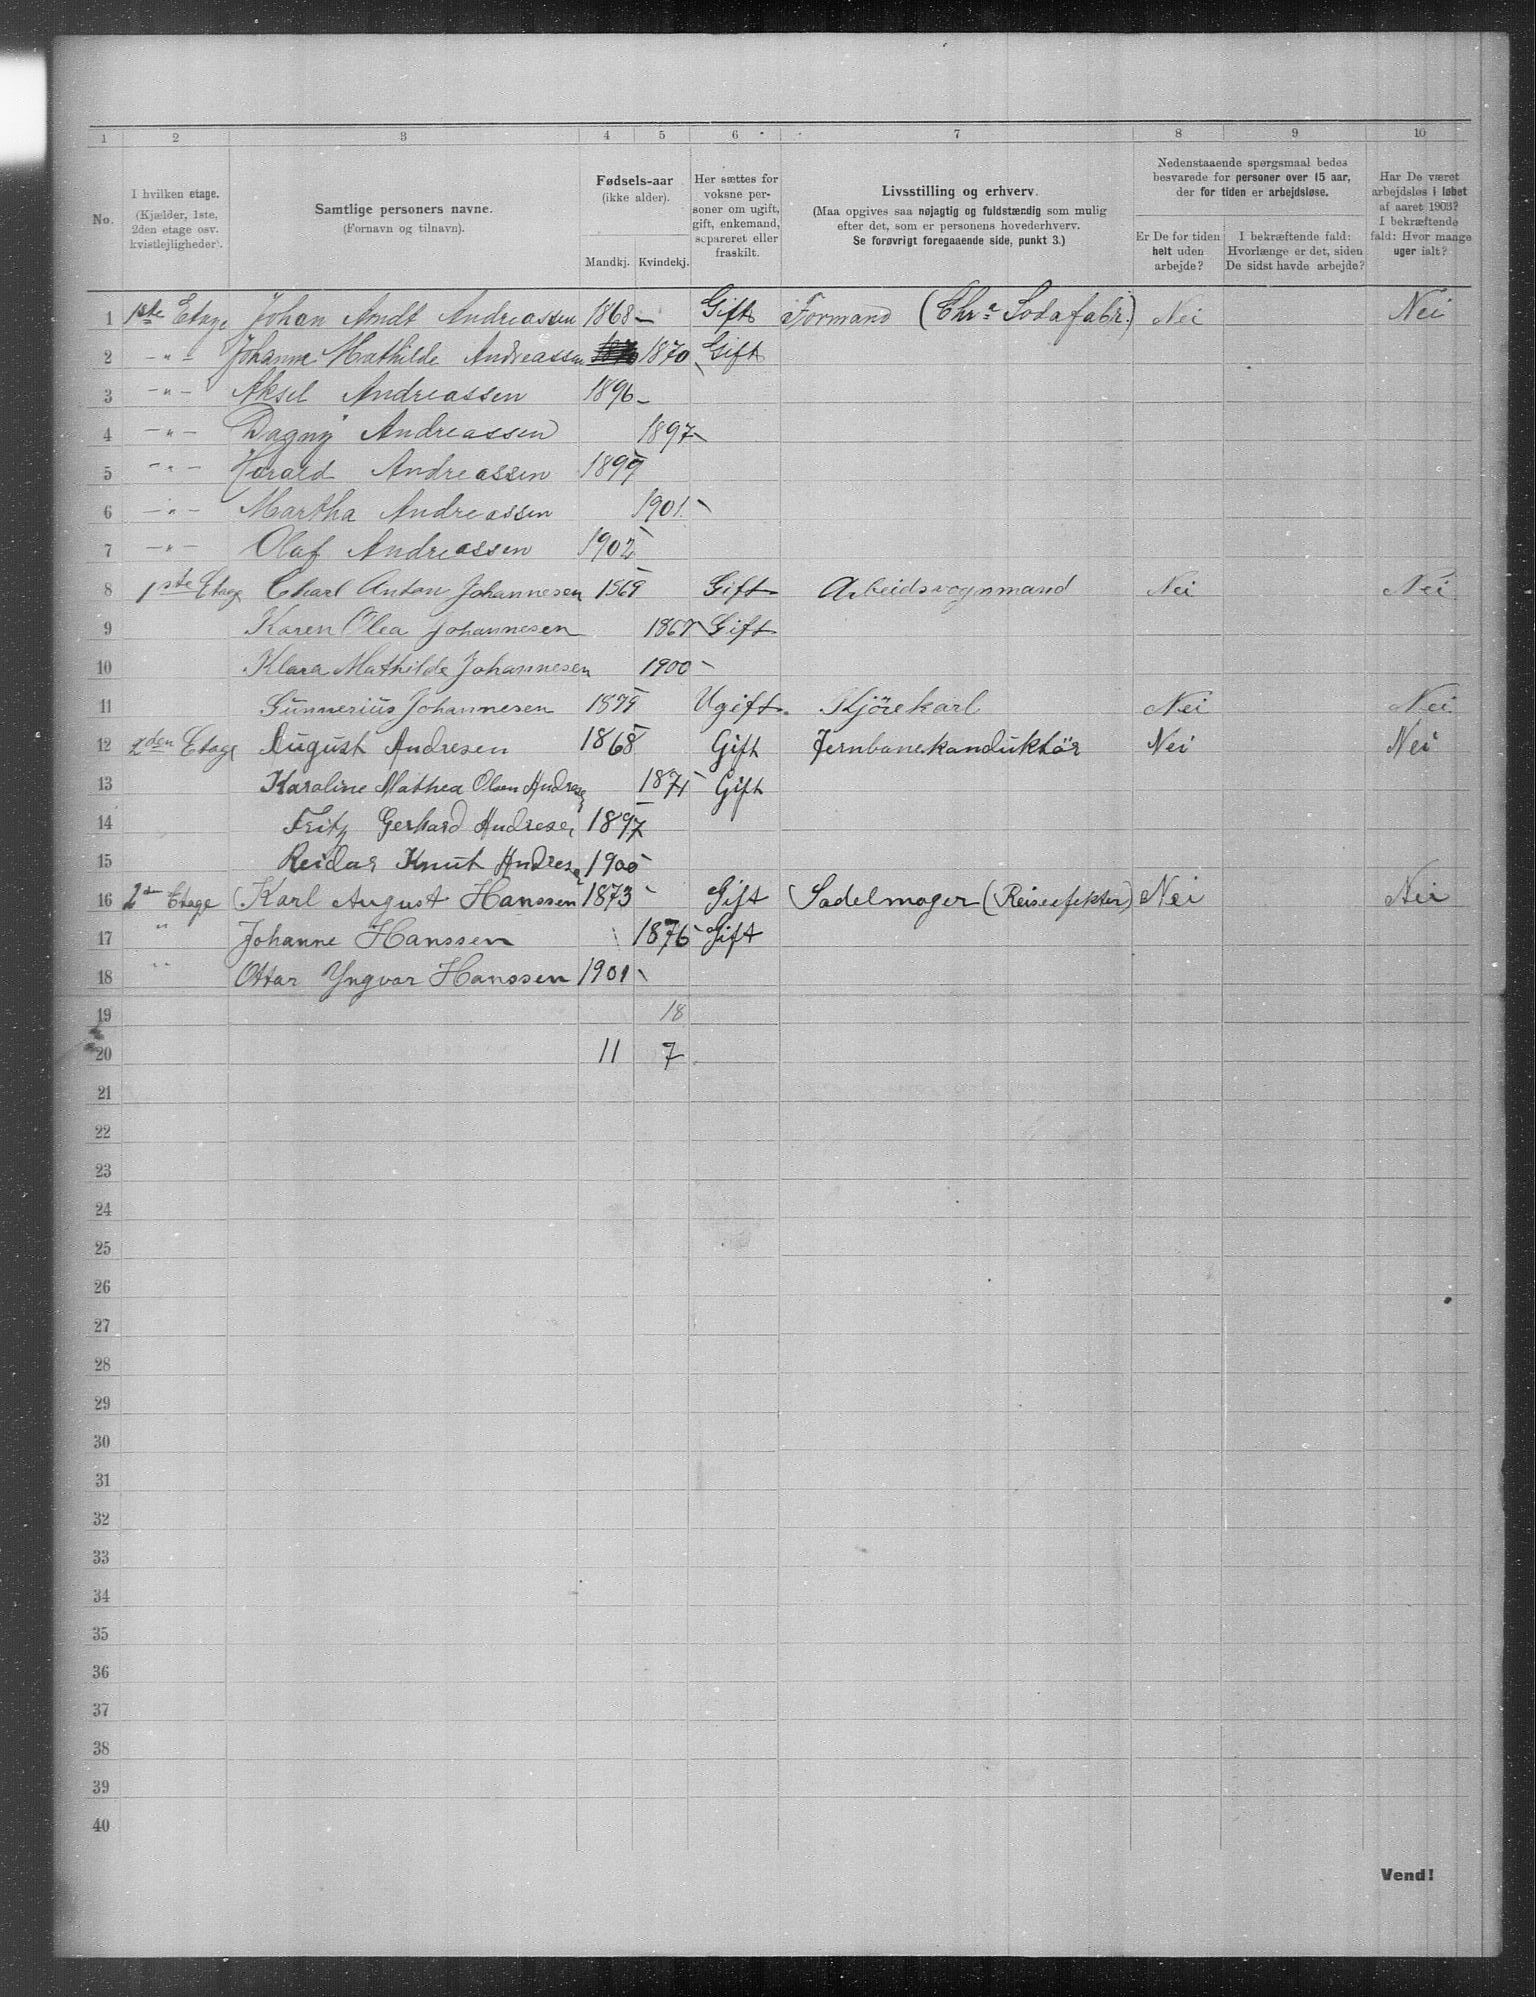 1 2 3 4 5 6 7 8 9 10
No.
I hvilken etage.
(Kjælder, 1ste,
2den etage osv.
kvistlejligheder).
Samtlige personers navne.
(Fornavn og tilnavn).
Fødsels-aar
(ikke alder).
Mandkj. Kvindekj.
Her sættes for
voksne per-
soner om ugift,
gift, enkemand,
separeret eller
fraskilt.
Livsstilling og erhverv.
(Maa opgives saa nøjagtig og fuldstændig som mulig
efter det, som er personens hovederhverv.
Se forøvrigt foregaaende side, punkt 3.)
Nedenstaaende spørgsmaal bedes
besvarede for personer over 15 aar,
der for tiden er arbejdsløse.
Er De for tiden
helt uden
arbejde?
I bekræftende fald:
Hvorlænge er det, siden
De sidst havde arbejde?
Har De været
arbejdsløs i løbet
af aaret 1903?
I bekræftende
fald: Hvor mange
uger ialt?
1 1ste Etage Johan Arndt Andreassen 1868 – Gift Formand (Chr.a Sodafabr.) Nei Nei
2 – " – Johanne Mathilde Andreassen 1870 Gift
3 – " – Aksel Andreassen 1896 –
4 – " – Dagny Andreassen 1897
5 – " – Harald Andreassen 1899
6 – " – Martha Andreassen 1901
7 – " – Olaf Andreassen 1902
8 1ste Etage Charl Anton Johannesen 1869 Gift Arbeidsvognmand Nei Nei
9 Karen Olea Johannesen 1867 Gift
10 Klara Mathilde Johannesen 1900
11 Gunnerius Johannesen 1879 Ugift Kjörekarl Nei Nei
12 2den Etage August Andresen 1868 Gift Jernbanekonduktör Nei Nei
13 Karoline Mathea Olsen Andresen 1871 Gift
14 Fritz Gerhard Andresen 1897
15 Reidar Knut Andresen 1900
16 2den Etage Karl August Hanssen 1873 Gift Sadelmager (Reiseefekter) Nei Nei
17 " Johanne Hanssen 1876 Gift
18 " Ottar Yngvar Hanssen 1901
19 18
20 11 7
21
22
23
24
25
26
27
28
29
30
31
32
33
34
35
36
37
38
39
40
Vend!